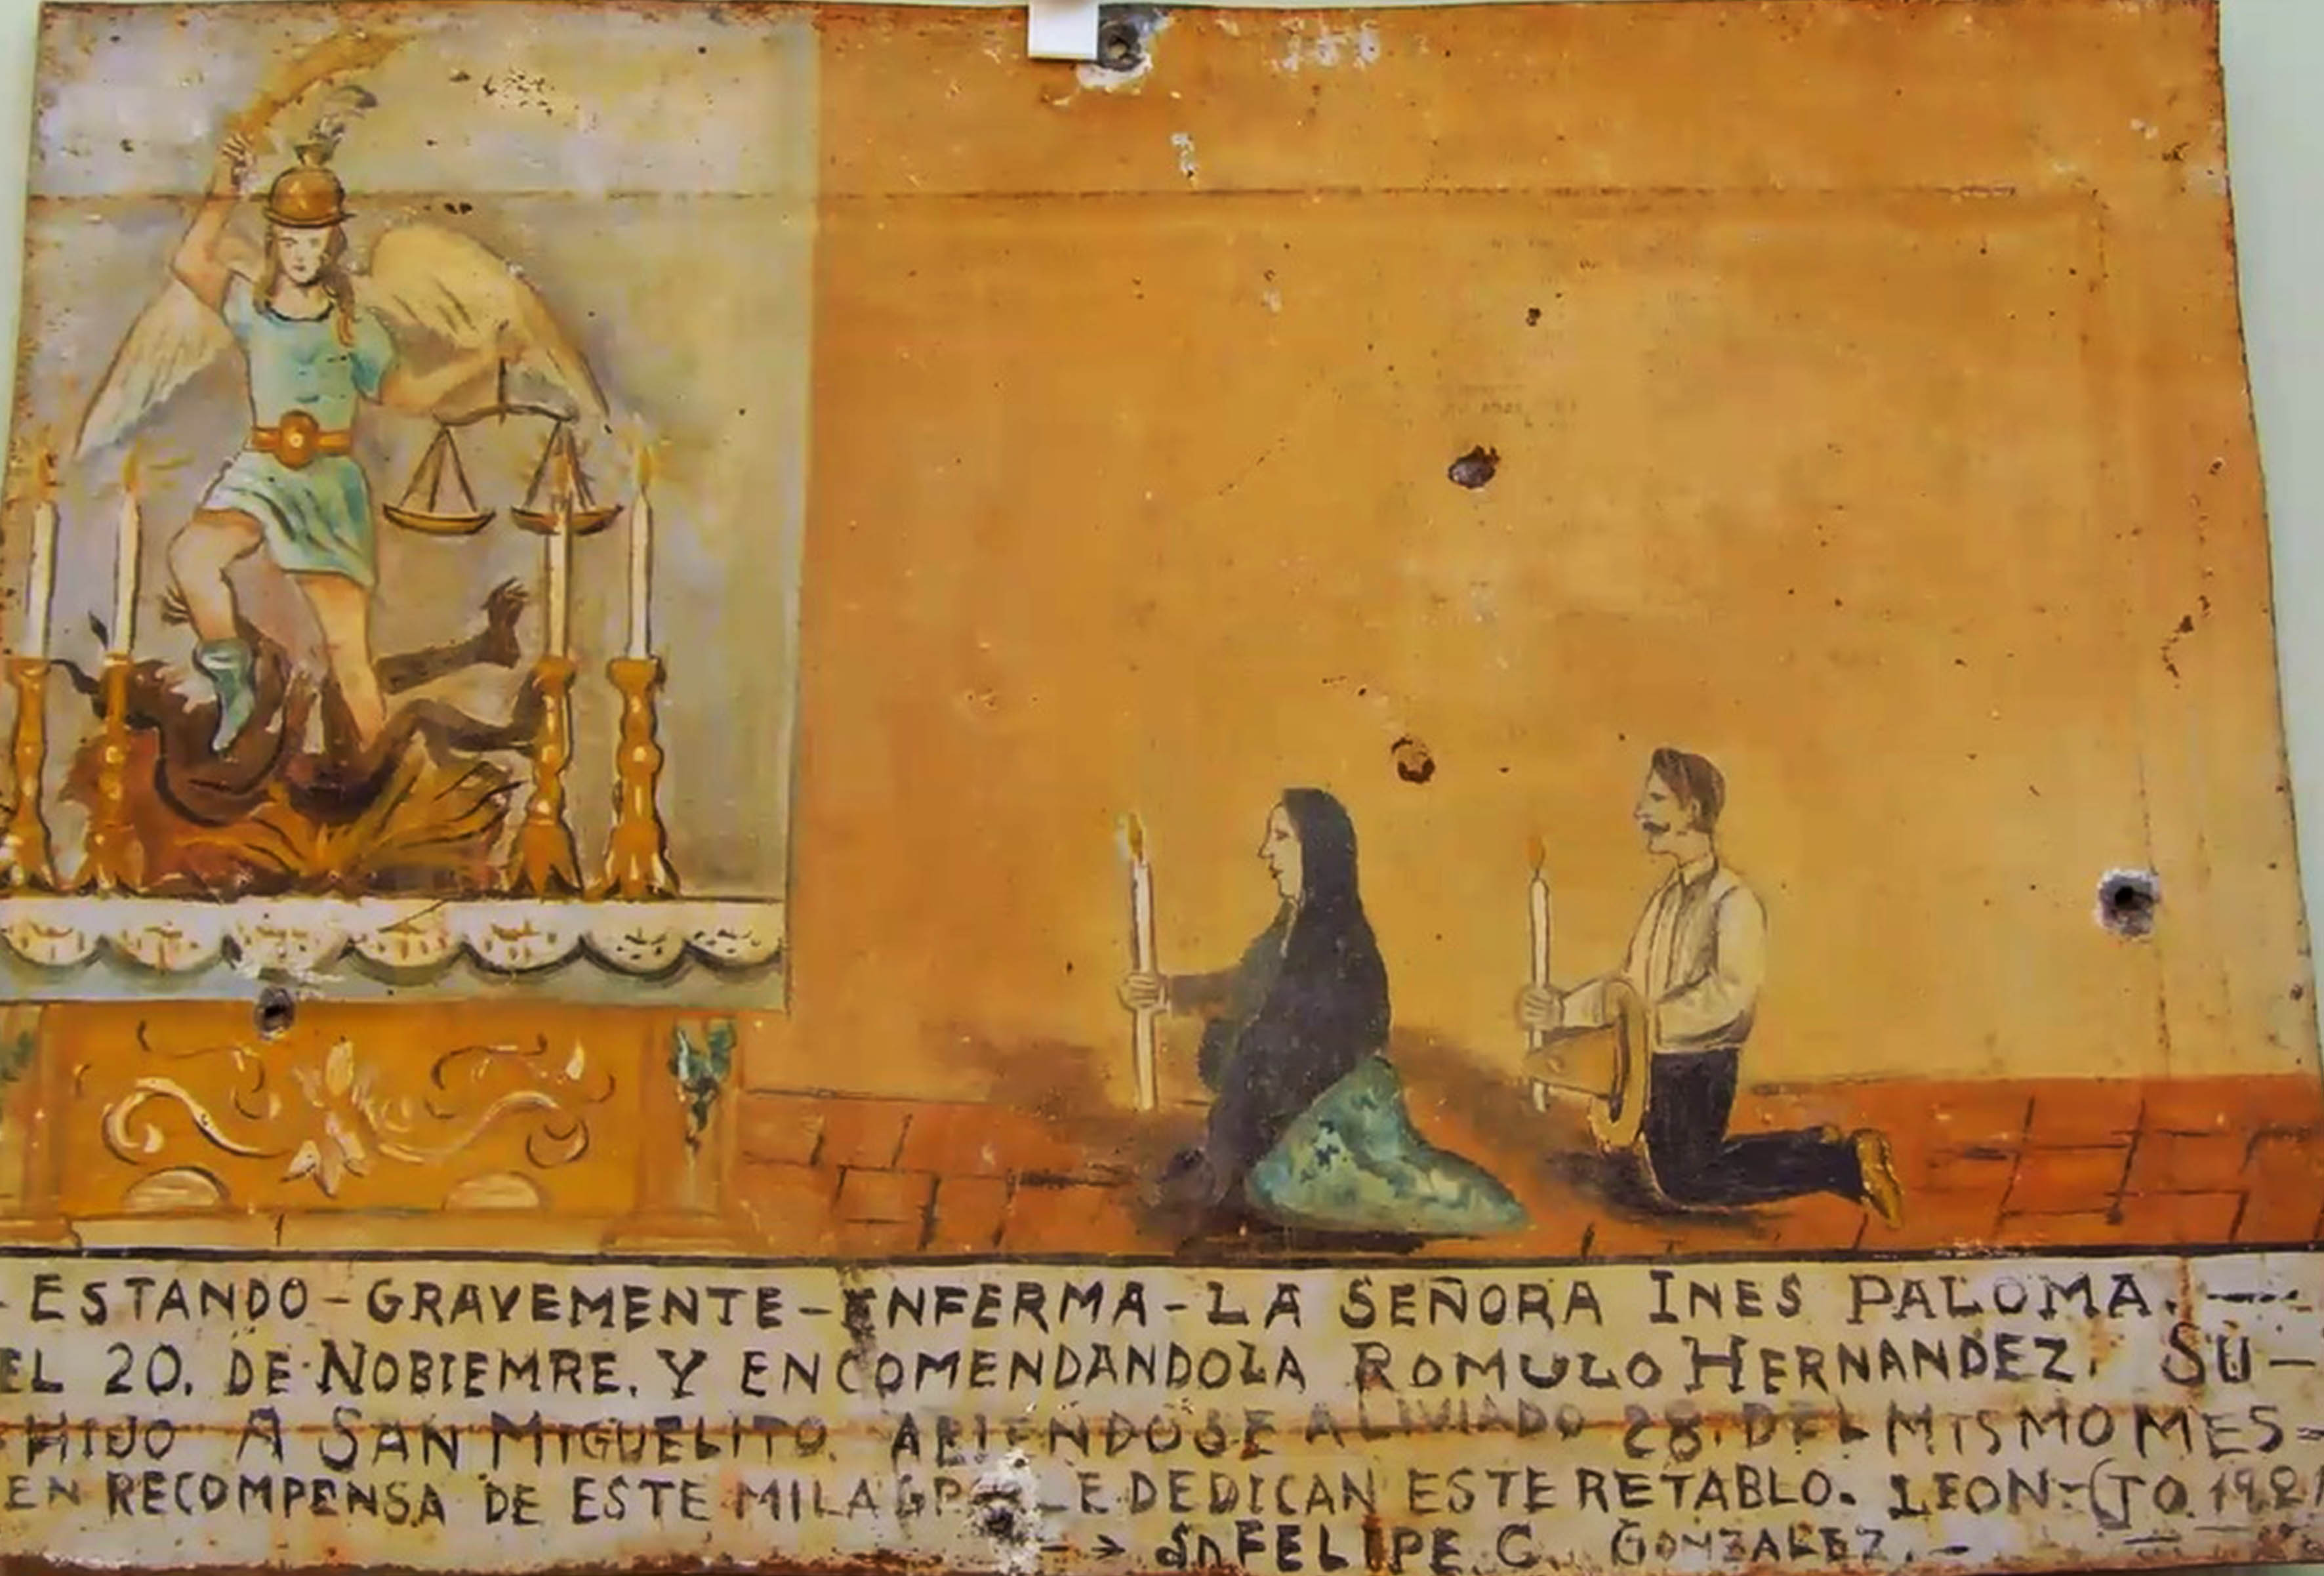 ESTANDO-GRAVEMENTE-ENFERMA-LA SEÑORA INES PALOMA.
EL 20. DE NOBIEMRE. Y ENCOMENDANDOLA ROMULO HERNANDEZ. SU-
HIJO A SAN MIGUELITO. ABIENDOSE ALIVIADO 28. DEL MISMO MES=
EN RECOMPENSA DE ESTE DEDICAN ESTE RETABLO. LEON-GTO
SnFELIPE. G. GONZALEZ.-